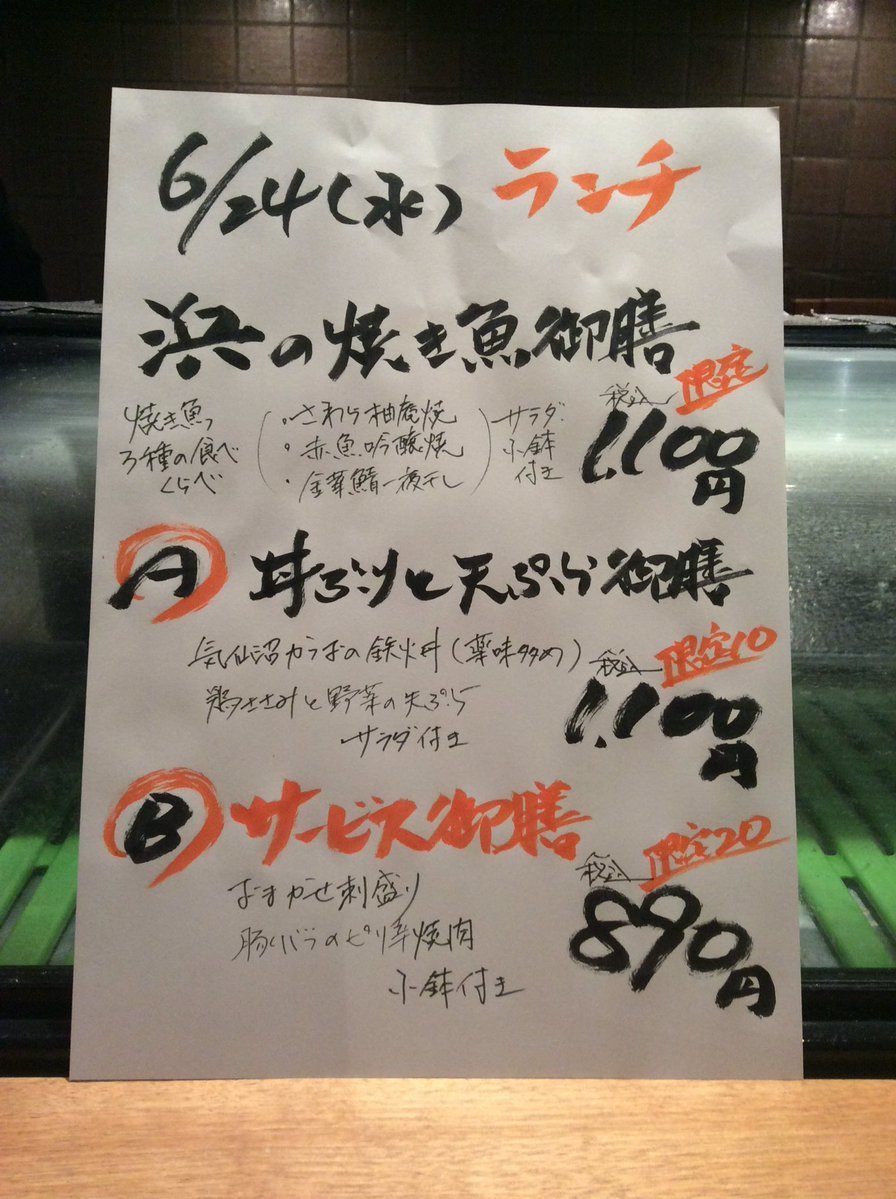 6/24(水) ランチ
浜の焼き魚御膳
限定
焼き魚
3種の食べ
くらべ
・さわら柚庵焼
・赤魚吟醸焼
・金華鯖一夜干し
サラダ
小鉢
付き
税込
1,100円
A 丼ぶりと天ぷら御膳
気仙沼かつおの鉄火丼(薬味多め)
鶏ささみと野菜の天ぷら
サラダ付き
税込 限定10
1,100円
B サービス御膳
おまかせ刺盛り
豚バラのピリ辛焼肉
小鉢付き
税込 限定20
890円